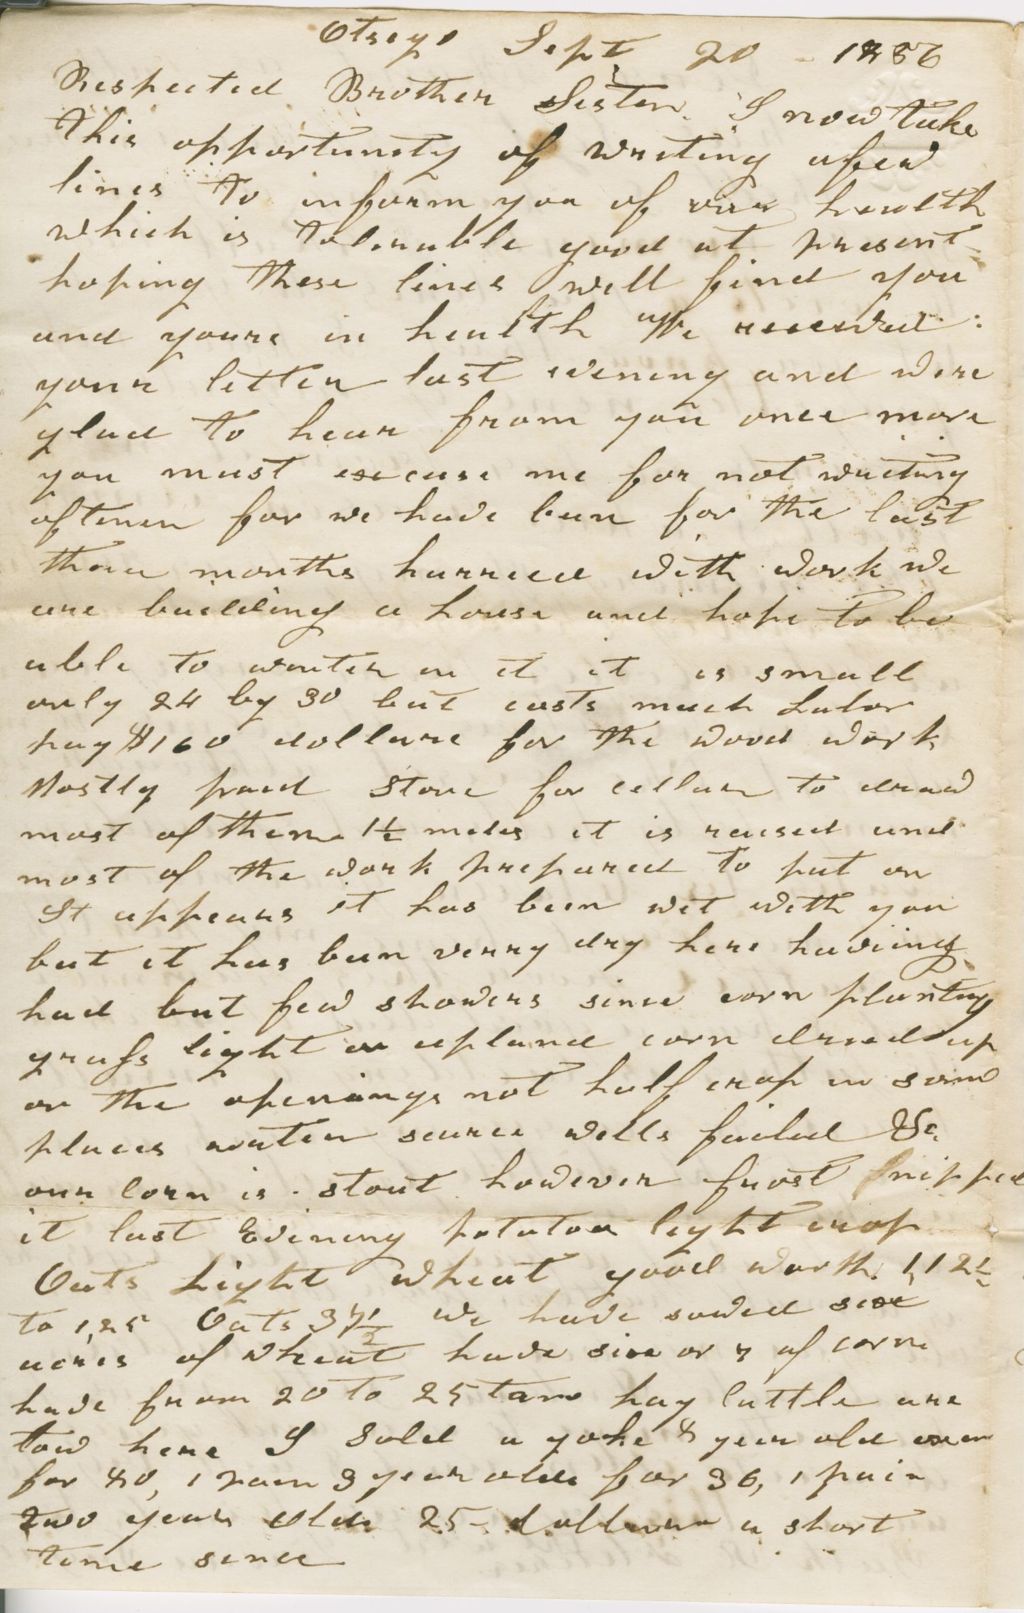 Otsego Sept 20 - 1856
Respected Brother Sister. I now take
this opportunity of writing afew
lines to inform you of our health
which is tolerable good at present
hoping these lines will find you
and yours in health We received
your letter last evening and were
glad to hear from you once more
you must excuse me for not writing
oftener for we have been for the last
three months hurried with work we
are building a house and hope to be
able to winter in it it is small
only 24 by 30 but costs much Labor
pay $160 dollars for the wood work
Mostly paid Stone for cellar to draw
most of them 1½ miles it is raised and
most of the work prepared to put on
It appears it has been wet with you
but it has been verry dry here haveing
had but few showers since corn planting
grass light on upland corn dried up
on the openings not half crop in some
places water scarce wells failed &c.
our Corn is stout however frost nipped
it last Evening potatoes light crop
Oats Light wheat good worth 1,12½
to 1,25 Oats 37½ We have sowed six
acres of wheat have six or 7 of corn
have from 20 to 25 tons hay Cattle are
low here I Sold a yoke 8 year old oxen
for 80, 1 pair 3 year olds for 36, 1 pair
two years olds 25- dollars a short
time since